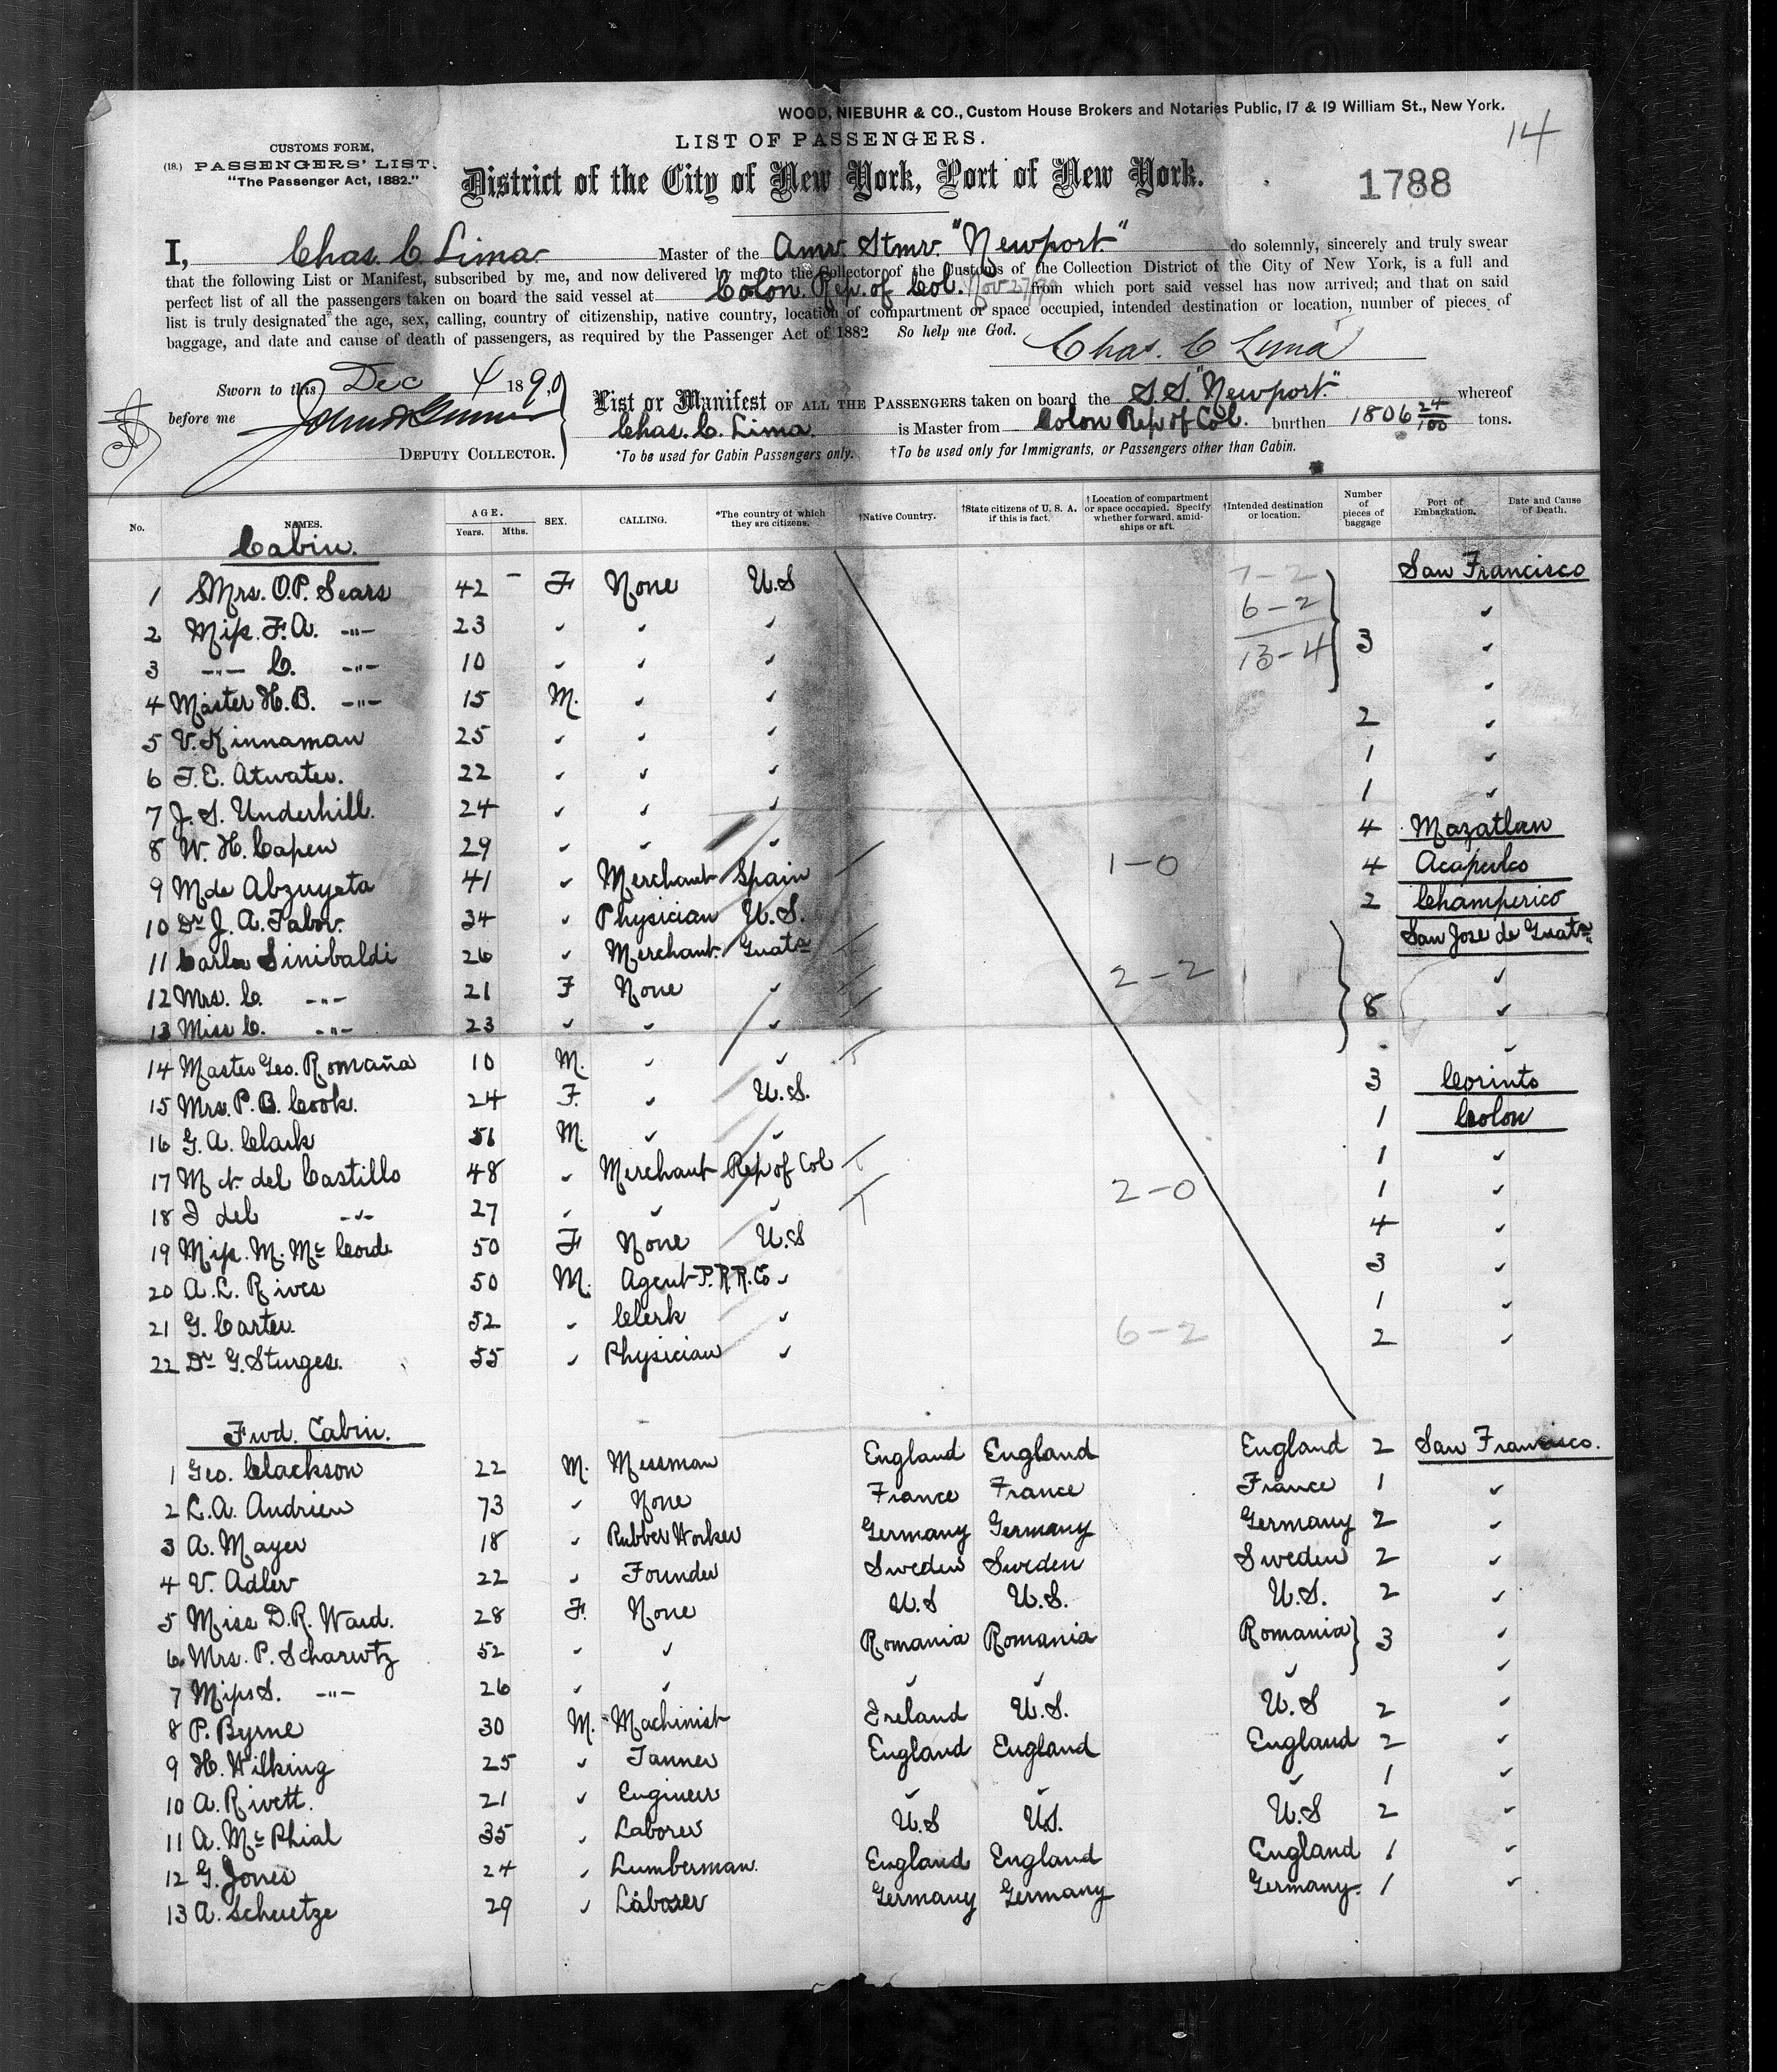 WOOD, NIEBUHR & CO., Custom House Brokers and Notaries Public, 17 & 19 William St., New York.
14
LIST OF PASSENGERS.
CUSTOMS FORM,
(18.) PASSENGERS' LIST.
"The Passenger Act, 1882."
District of the City of New York, Port of New York.
1788
I, Chas. C Lima Master of the Amr. Stmr. "Newport" do solemnly, sincerely and truly swear
that the following List or Manifest, subscribed by me, and now delivered by me to the Collector of the Customs of the Collection District of the City of New York, is a full and
perfect list of all the passengers taken on board the said vessel at Colon. Rep. of Col. Nov 27/90 from which port said vessel has now arrived; and that on said
list is truly designated the age, sex, calling, country of citizenship, native country, location of compartment or space occupied, intended destination or location, number of pieces of
baggage, and date and cause of death of passengers, as required by the Passenger Act of 1882 So help me God.
Chas. C Lima
Sworn to this Dec 4 1890
before me
DEPUTY COLLECTOR.
List or Manifest OF ALL THE PASSENGERS taken on board the S.S. "Newport." whereof
Chas. C. Lima. is Master from Colon Rep of Col. burthen 1806 24/100 tons.
*To be used for Cabin Passengers only. †To be used only for Immigrants, or Passengers other than Cabin.
No. NAMES. AGE. Years. Mths. SEX. CALLING. *The country of which they are citizens. †Native Country. †State citizens of U. S. A. if this is fact. †Location of compartment or space occupied. Specify whether forward, amidships or aft. †Intended destination or location. Number of pieces of baggage Port of Embarkation. Date and Cause of Death.
Cabin.
1 Mrs. O.P. Sears 42 - F None U.S 7-2 San Francisco
2 Miss. F.A. -"- 23 ✓ ✓ ✓ 6-2 ✓
3 -"- C. -"- 10 ✓ ✓ ✓ 13-4 3 ✓
4 Master H.B. -"- 15 M. ✓ ✓ ✓
5 V. Kinnaman 25 ✓ ✓ ✓ 2 ✓
6 F.E. Atwater. 22 ✓ ✓ ✓ 1 ✓
7 J.S. Underhill. 24 ✓ ✓ ✓ 1 ✓
8 W.H. Capen 29 ✓ ✓ ✓ 4 Mazatlan
9 M de Abzuyeta 41 ✓ Merchant Spain 1-0 4 Acapulco
10 Dr J.A. Tabor. 34 ✓ Physician U.S. 2 Champerico
11 Carlos Sinibaldi 26 ✓ Merchant. Guata San Jose de Guata
12 Mrs. C. -"- 21 F None ✓ 2-2 ✓
13 Miss C. -"- 23 ✓ ✓ ✓ 8 ✓
14 Master Geo. Romaña 10 M. ✓ ✓ ✓
15 Mrs. P.B. Cook. 24 F. ✓ U.S. 3 Corinto
16 G.A. Clark 51 M. ✓ ✓ 1 Colon
17 M A del Castillo 48 ✓ Merchant Rep of Col 1 ✓
18 J del -"- 27 ✓ ✓ ✓ 2-0 1 ✓
19 Miss. M. Mc Cord. 50 F None U.S 4 ✓
20 A.L. Rives 50 M. Agent P.R.R.Co ✓ 3 ✓
21 G. Carter. 52 ✓ Clerk ✓ 1 ✓
22 Dr G. Sturges. 55 ✓ Physician ✓ 6-2 2 ✓
Fwd. Cabin.
1 Geo. Clackson 22 M. Messman England England England 2 San Francisco.
2 L.A. Andrien 73 ✓ None France France France 1 ✓
3 A. Mayer 18 ✓ Rubber Worker Germany Germany Germany 2 ✓
4 V. Adler 22 ✓ Founder Sweden Sweden Sweden 2 ✓
5 Miss D.R. Ward. 28 F. None U.S U.S. U.S. 2 ✓
6 Mrs. P. Scharwtz 52 ✓ ✓ Romania Romania Romania 3 ✓
7 Miss S. -"- 26 ✓ ✓ ✓ ✓ ✓ ✓
8 P. Byrne 30 M. Machinist Ireland U.S. U.S 2 ✓
9 H. Wilking 25 ✓ Tanner England England England 2 ✓
10 A. Rivett. 21 ✓ Engineer ✓ ✓ ✓ 1 ✓
11 A. Mc Phial 35 ✓ Laborer U.S U.S. U.S 2 ✓
12 G. Jones 24 ✓ Lumberman. England England England 1 ✓
13 A. Schuetze 29 ✓ Laborer Germany Germany Germany. 1 ✓